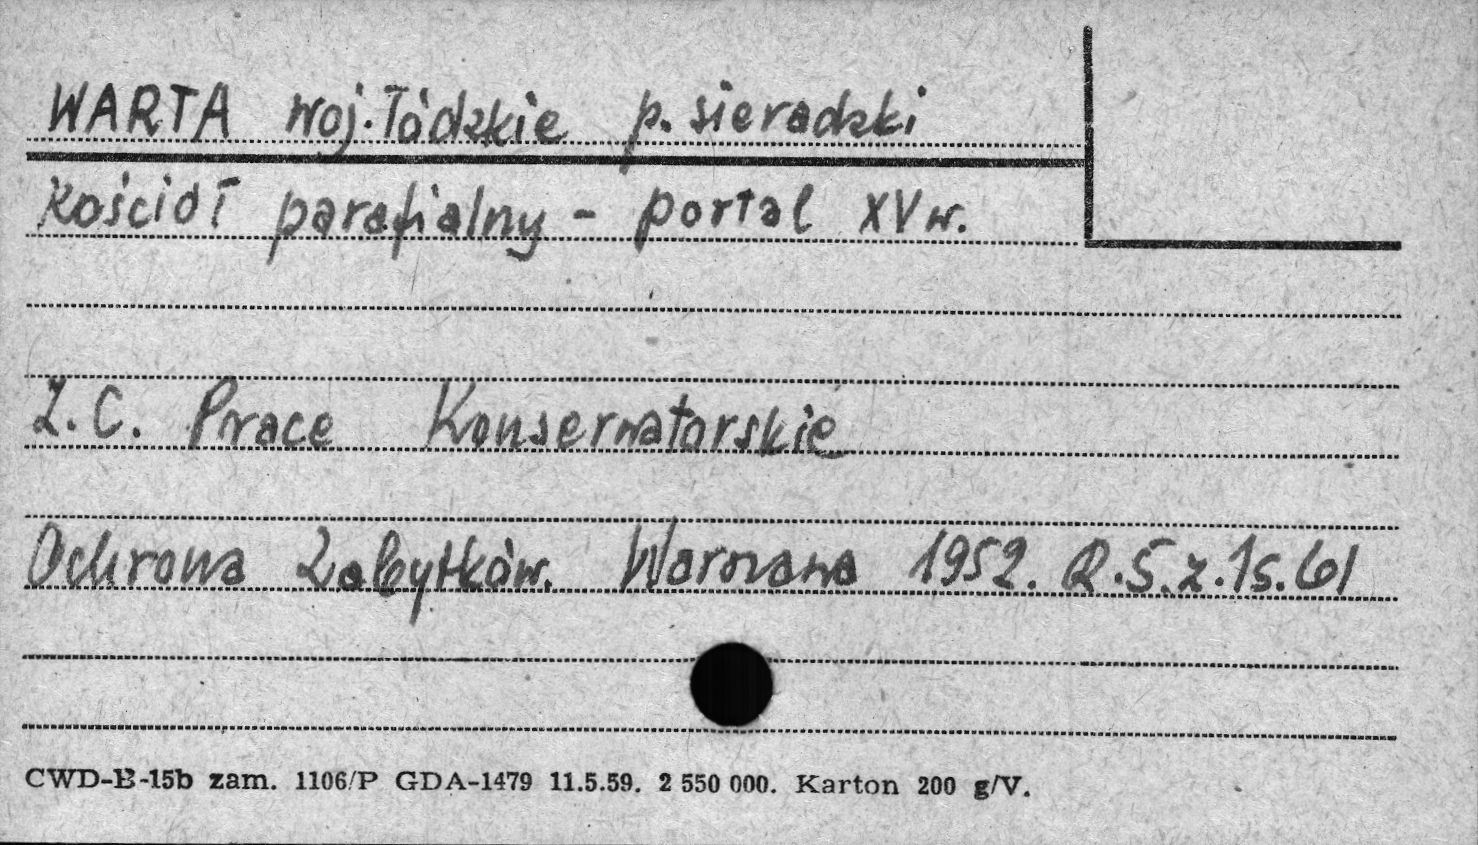 WARTA woj. łódzkie p. sieradzki
Kościół parafialny - portal XV w.
Z. C. Prace Konserwatorskie
Ochrona Zabytków. Warszawa 1952. R.5.z.1s.61
CWD-B-15b zam. 1106/P GDA-1479 11.5.59. 2 550 000. Karton 200 g/V.